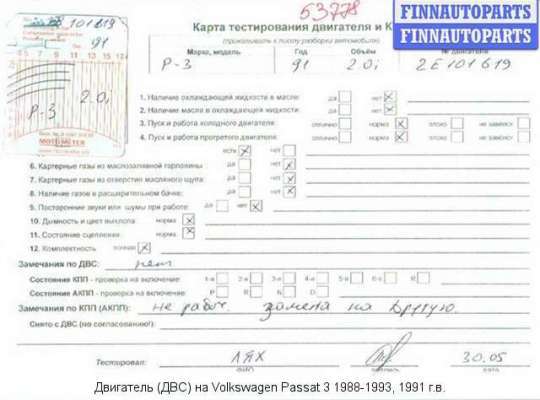 53778
FINNAUTOPARTS
FINNAUTOPARTS
Карта тестирования двигателя и К
(прикалывать к листу разборки автомобиля)
Марка, модель Год Объём № двигателя
P-3 91 2.0i 2E101619
101619
91
7 9 11 13 15
P-3 2.0i
MOTOMETER
1. Наличие охлаждающей жидкости в масле: да нет
2. Наличие масла в охлаждающей жидкости: да нет
3. Пуск и работа холодного двигателя: отлично норма плохо не завелся
4. Пуск и работа прогретого двигателя: отлично норма плохо не завелся
есть нет
6. Картерные газы из маслозаливной горловины: да нет
7. Картерные газы из отверстия масляного щупа: да нет
8. Наличие газов в расширительном бачке: да нет
9. Посторонние звуки или шумы при работе: да нет
10. Дымность и цвет выхлопа: норма
11. Состояние сцепления: норма
12. Комплектность: полная
Замечания по ДВС:
Состояние КПП - проверка на включение: 1-я 2-я 3-я 4-я 5-я 6-я R
Состояние АКПП - проверка на включение: P R N D
Замечания по КПП (АКПП): не рабоч. замена на другую.
Снято с ДВС (по согласованию!):
Тестировал: ЛЯХ 30.05
ФИО подпись дата
Двигатель (ДВС) на Volkswagen Passat 3 1988-1993, 1991 г.в.